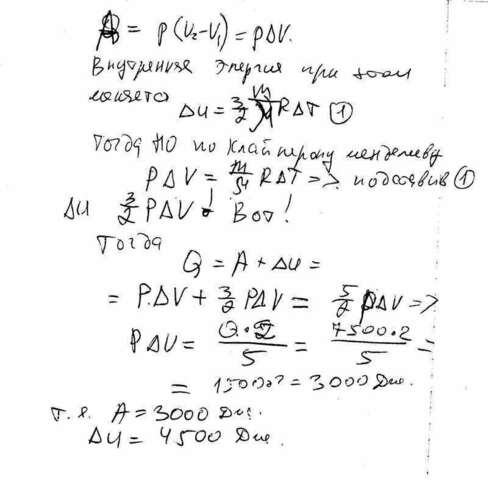 A = P(V₂-V₁) = PΔV.
Внутренняя энергия при этом
меняется
ΔU = 3/2 m/M RΔT ①
Тогда по Клайперону менделеву
PΔV = m/M RΔT => подставив ①
ΔU 3/2 PΔV ! Вот!
Тогда
Q = A + ΔU =
= P.ΔV + 3/2 PΔV = 5/2 PΔV =>
PΔV = Q·2/5 = 7500·2/5 =
= 1500·2 = 3000 Дж.
т.е. A = 3000 Дж.
ΔU = 4500 Дж.